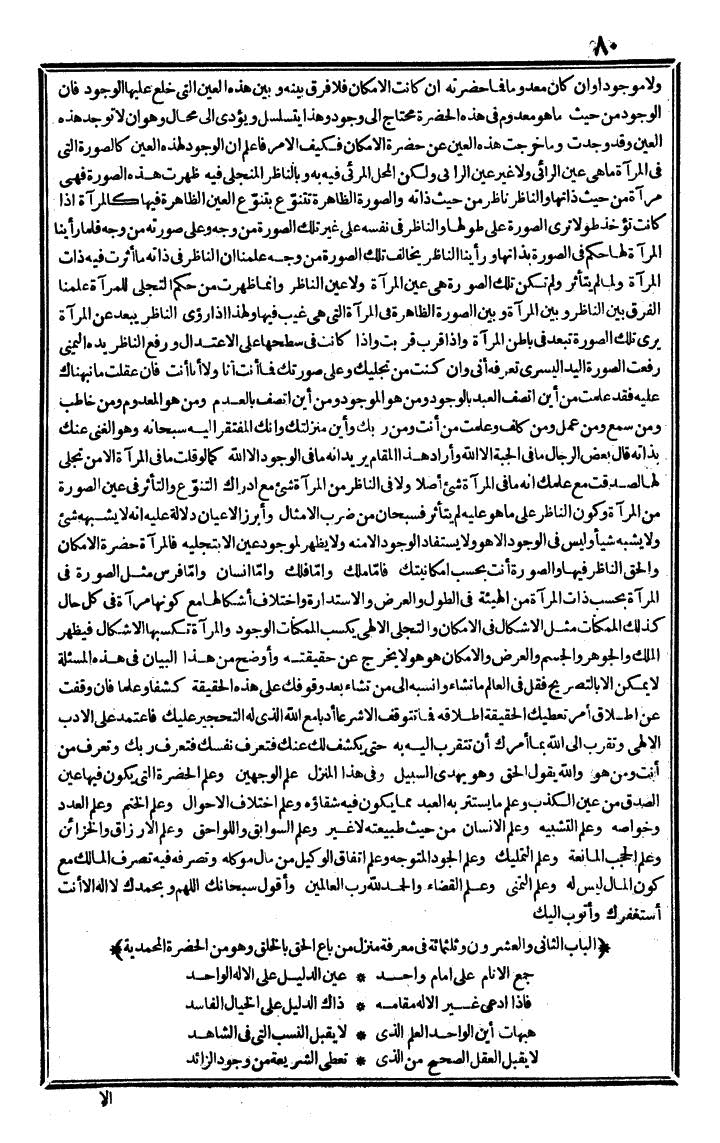 ٨٠
ولا موجودا وان كان معدوما فما حضرته ان كانت الامكان فلا فرق بينه وبين هذه العين التى خلع عليها الوجود فان
الوجود من حيث ماهو معدوم فى هذه الحضرة محتاج الى وجود وهذا يتسلسل ويؤدى الى محال وهو ان لا توجد هذه
العين وقد وجدت وما خرجت هذه العين عن حضرة الامكان فكيف الامر فاعلم ان الوجود لهذه العين كالصورة التى
فى المرآة ماهى عين الرائى ولا غير عين الرائى ولكن المحل المرئى فيه به وبالناظر المتجلى فيه ظهرت هذه الصورة فهى
مرآة من حيث ذاتها والناظر ناظر من حيث ذاته والصورة الظاهرة تتنوّع بتنوّع العين الظاهرة فيها كالمرآة اذا
كانت تؤخذ طولا ترى الصورة على طولها والناظر فى نفسه على غير تلك الصورة من وجه وعلى صورته من وجه فلما رأينا
المرآة لها حكم فى الصورة بذاتها ورأينا الناظر يخالف تلك الصورة من وجه علمنا ان الناظر فى ذاته ما أثرت فيه ذات
المرآة ولما لم يتأثر ولم تكن تلك الصورة هى عين المرآة ولا عين الناظر وانما ظهرت من حكم التجلى للمرآة علمنا
الفرق بين الناظر وبين المرآة وبين الصورة الظاهرة فى المرآة التى هى غيب فيها ولهذا اذا رؤى الناظر يبعد عن المرآة
يرى تلك الصورة تبعد فى باطن المرآة واذا قرب قربت واذا كانت فى سطحها على الاعتدال ورفع الناظر يده اليمنى
رفعت الصورة اليد اليسرى تعرفه أنى وان كنت من تجليك وعلى صورتك فما أنت أنا ولا أنا أنت فان عقلت ما نبهناك
عليه فقد علمت من أين اتصف العبد بالوجود ومن هو الموجود ومن أين اتصف بالعدم ومن هو المعدوم ومن خاطب
ومن سمع ومن عمل ومن كلف وعلمت من أنت ومن ربك وأين منزلتك وانك المفتقر اليه سبحانه وهو الغنى عنك
بذاته قال بعض الرجال ما فى الجبة الا الله وأراد هذا المقام يريد انه ما فى الوجود الا الله كما لو قلت ما فى المرآة الا من تجلى
لها لصدقت مع علمك انه ما فى المرآة شئ أصلا ولا فى الناظر من المرآة شئ مع ادراك التنوّع والتأثر فى عين الصورة
من المرآة وكون الناظر على ماهو عليه لم يتأثر فسبحان من ضرب الامثال وأبرز الاعيان دلالة عليه انه لا يشبهه شئ
ولا يشبه شيأ وليس فى الوجود الا هو ولا يستفاد الوجود الا منه ولا يظهر لموجود عين الا بتجليه فالمرآة حضرة الامكان
والحق الناظر فيها والصورة أنت بحسب امكانيتك فاما ملك واما فلك واما انسان واما فرس مثل الصورة فى
المرآة بحسب ذات المرآة من الهيئة فى الطول والعرض والاستدارة واختلاف أشكالها مع كونها مرآة فى كل حال
كذلك الممكنات مثل الاشكال فى الامكان والتجلى الالهى يكسب الممكنات الوجود والمرآة تكسبها الاشكال فيظهر
الملك والجوهر والجسم والعرض والامكان هو هو لا يخرج عن حقيقته وأوضح من هذا البيان فى هذه المسئلة
لا يمكن الا بالتصريح فقل فى العالم ما تشاء وانسبه الى من تشاء بعد وقوفك على هذه الحقيقة كشفا وعلما فان وقفت
عن اطلاق أمر تعطيك الحقيقة اطلاقه فما تتوقف الا شرعا أدبا مع الله الذى له التحجير عليك فاعتمد على الادب
الالهى وتقرب الى الله بما أمرك أن تتقرب اليه به حتى يكشف لك عنك فتعرف نفسك فتعرف ربك وتعرف من
أنت ومن هو والله يقول الحق وهو يهدى السبيل وفى هذا المنزل علم الوجهين وعلم الحضرة التى يكون فيها عين
الصدق من عين الكذب وعلم ما يستتر به العبد مما يكون فيه شقاؤه وعلم اختلاف الاحوال وعلم الختم وعلم العدد
وخواصه وعلم التشبيه وعلم الانسان من حيث طبيعته لا غير وعلم السوابق واللواحق وعلم الارزاق والخزائن
وعلم الحجب المانعة وعلم التمليك وعلم الجود المتوجه وعلم انفاق الوكيل من مال موكله وتصرفه فيه تصرف المالك مع
كون المال ليس له وعلم التمنى وعلم القضاء والحمد لله رب العالمين وأقول سبحانك اللهم وبحمدك لا اله الا أنت
أستغفرك وأتوب اليك
﴿الباب الثانى والعشرون وثلثمائة فى معرفة منزل من باع الحق بالخلق وهو من الحضرة المحمدية﴾
جمع الانام على امام واحد * عين الدليل على الاله الواحد
فاذا ادعى غير الاله مقامه * ذاك الدليل على الخيال الفاسد
هيهات أين الواحد العلم الذى * لا يقبل النسب التى فى الشاهد
لا يقبل العقل الصحيح من الذى * تعطى الشريعة من وجود الزائد
الا